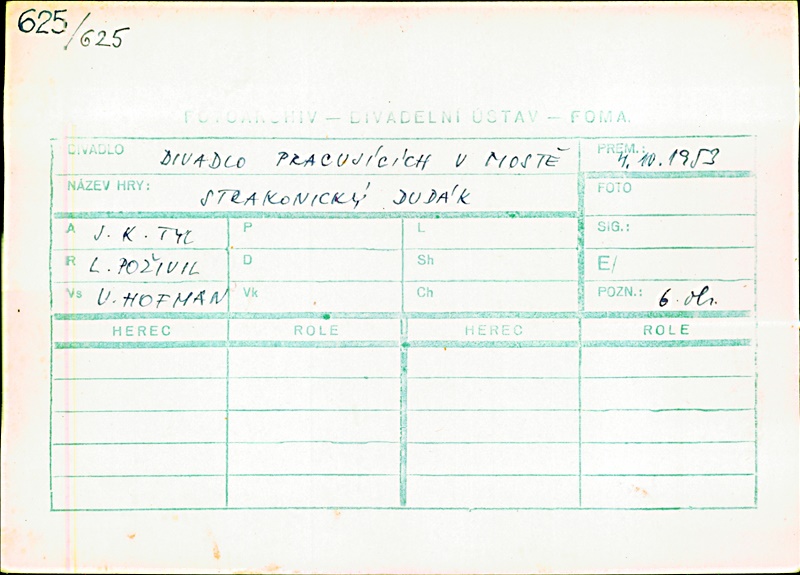 625/625
FOTOARCHIV — DIVADELNÍ ÚSTAV — FOMA.
DIVADLO DIVADLO PRACUJÍCÍCH V MOSTĚ PREM.: 4.10.1953
NÁZEV HRY: STRAKONICKÝ DUDÁK FOTO
A J. K. TYL P L SIG.:
R L. POŽIVIL D Sh E/
Vs V. HOFMAN Vk Ch POZN.: 6. obr.
HEREC ROLE HEREC ROLE